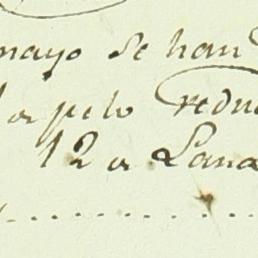 mayo se han
a pelo redu
12 a Lana